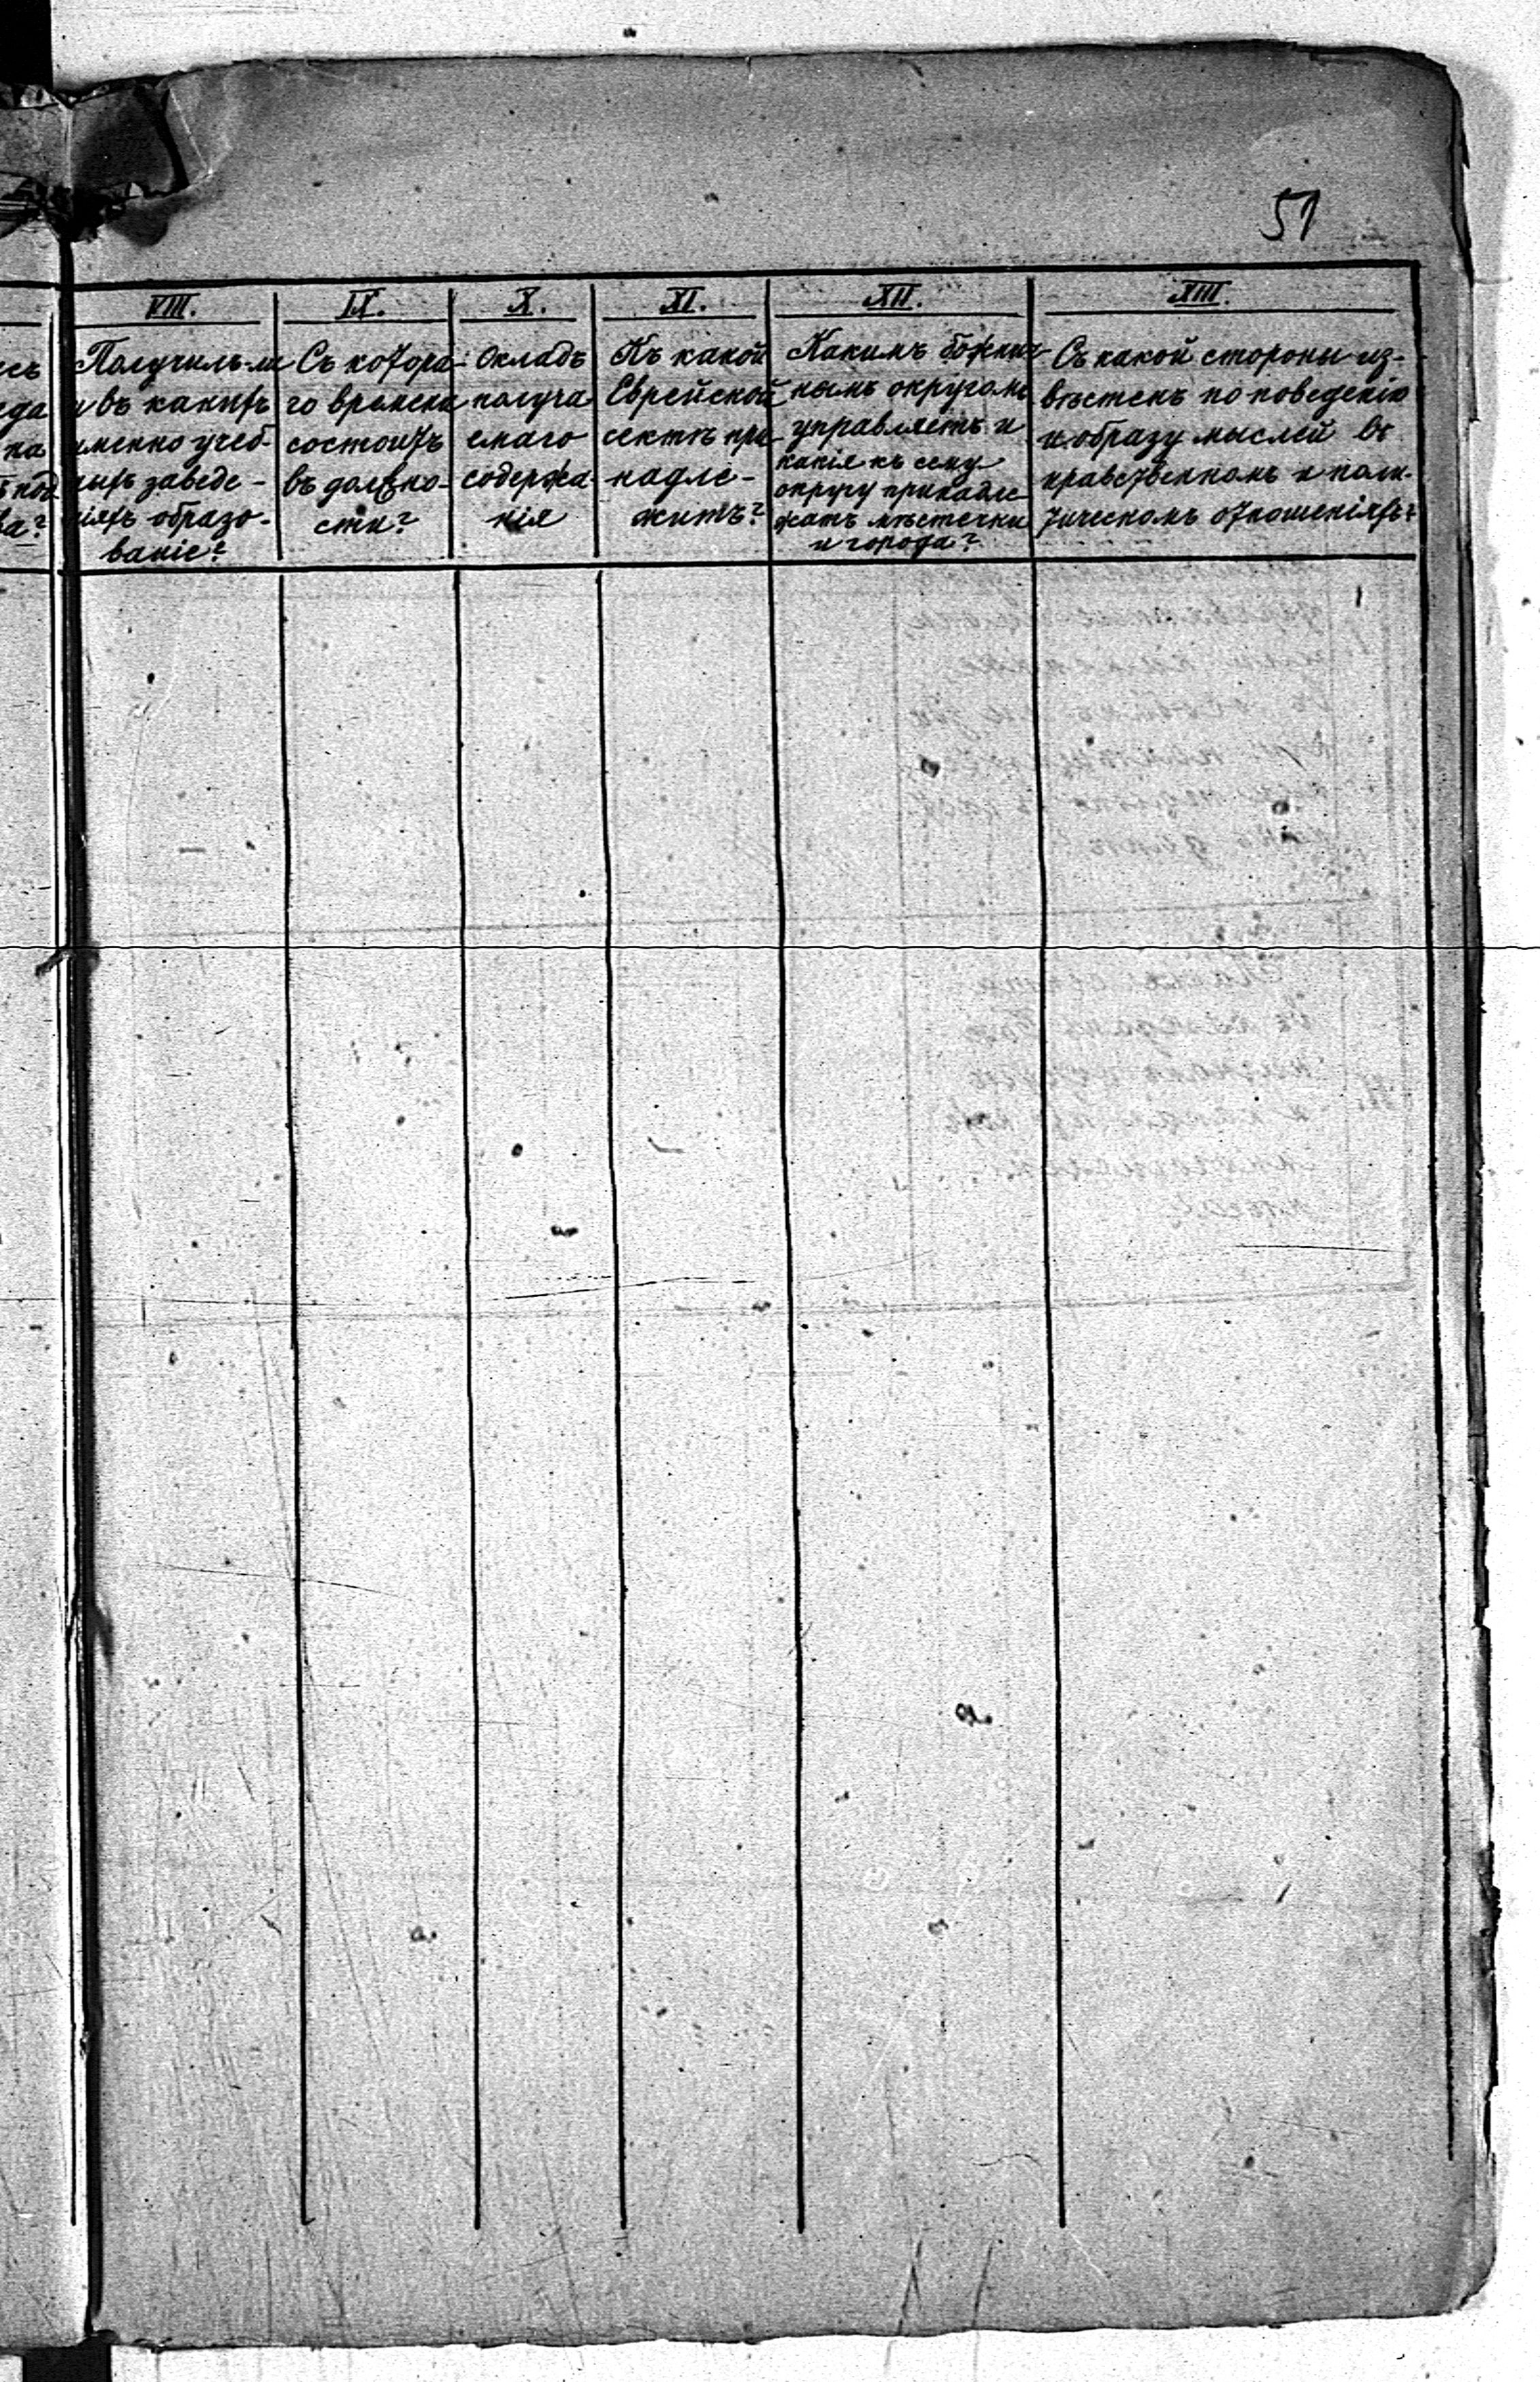 51
VIII.
Получилъ-ли
и въ какихъ
именно учеб-
ныхъ заведе-
ніяхъ образо-
ваніе?
IX.
Съ котора-
го времени
состоитъ
въ должно-
сти?
X.
Окладъ
получа
емаго
содержа
нія
XI.
Къ какой
Еврейской
сектѣ при-
надле-
житъ?
XII.
Какимъ божнич-
нымъ округомъ
управляетъ и
какія къ сему
округу принадле-
жатъ мѣстечки
и города?
XIII.
Съ какой стороны из-
вѣстенъ по поведенію
и образу мыслей въ
нравственномъ и поли-
тическомъ отношеніяхъ?